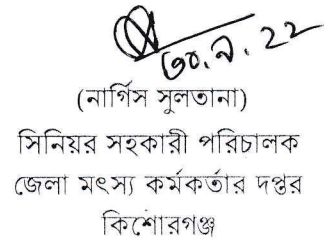 ৩০.৯.২২
(নার্গিস সুলতানা)
সিনিয়র সহকারী পরিচালক
জেলা মৎস্য কর্মকর্তার দপ্তর
কিশোরগঞ্জ